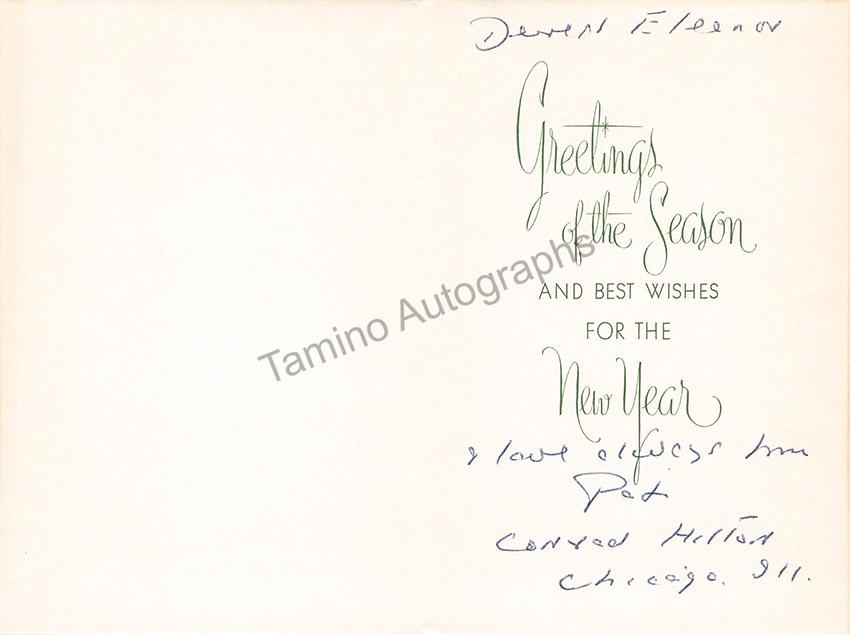 Dearest Eleanor
Greetings
of the Season
AND BEST WISHES
FOR THE
New Year
Tamino Autographs
& love always from
Pat
Conrad Hilton
Chicago. Ill.